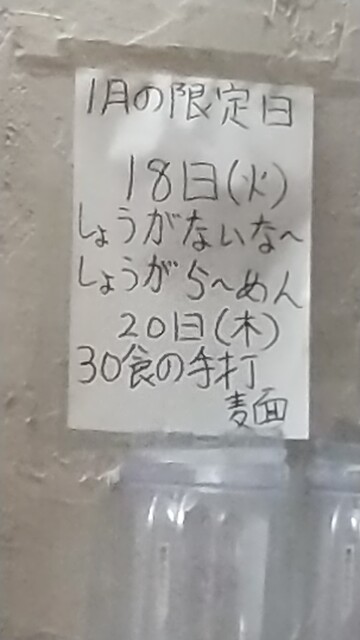 1月の限定日
18日(火)
しょうがないな〜
しょうがら〜めん
20日(木)
30食の手打
麦面